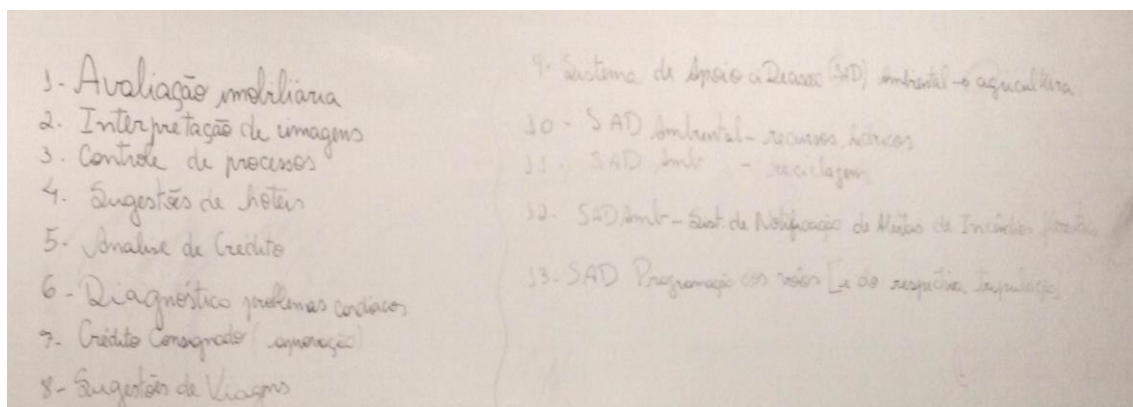 1- Avaliação imobiliária
2. Interpretação de imagens
3. Controle de processos
4. Sugestões de hoteis
5- Analise de Crédito
6- Diagnóstico problemas cardíacos
7- Crédito Consignado (aprovação)
8- Sugestões de Viagens
9- Sistema de Apoio a Decisão (SAD) Ambiental → aquicultura
10- SAD Ambiental - recursos hídricos
11. SAD Amb - reciclagem
12. SAD Amb - Sist. de Notificação de Alertas de Incêndios florestais
13- SAD Programação dos voos [e da respectiva tripulação]